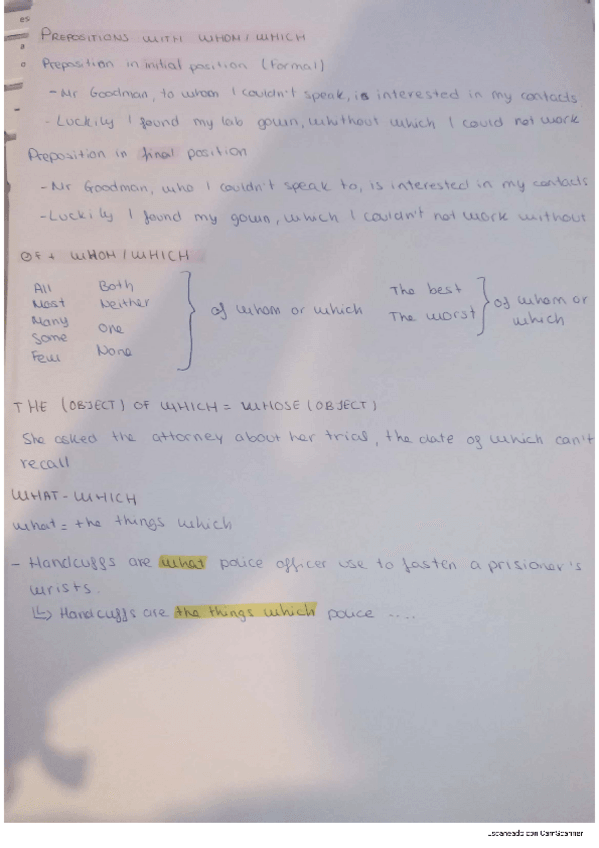 es
a
o
PREPOSITIONS WITH WHOM / WHICH
Preposition in initial position (formal)
- Mr Goodman, to whom I couldn't speak, is interested in my contacts
- Luckily I found my lab gown, whithout which I could not work
Preposition in final position
- Mr Goodman, who I couldn't speak to, is interested in my contacts
- Luckily I found my gown, which I couldn't not work without
OF + WHOM / WHICH
All Both
Most Neither
Many One
Some None
Few
of whom or which
The best
The worst
of whom or
which
THE (OBJECT) OF WHICH = WHOSE (OBJECT)
She asked the attorney about her trial, the date of which can't
recall
WHAT - WHICH
what = the things which
- Handcuffs are what police officer use to fasten a prisioner's
wrists.
↳ Handcuffs are the things which police ....
Escaneado con CamScanner